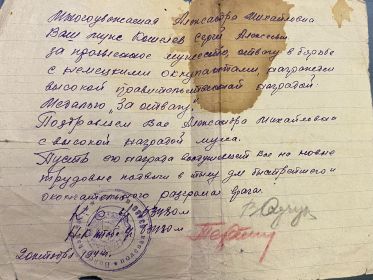 Многоуважаемая Александра Михайловна
Ваш муж Кошелев Сергей Алексеевич
за проявленное мужество, отвагу в борьбе
с немецкими оккупантами, награжден
высокой правительственной наградой
Медалью "За отвагу"
Поздравляем Вас Александра Михайловна
с высокой наградой мужа.
Пусть его награда воодушевит Вас на новые
трудовые подвиги в тылу для быстрейшего
окончательного разгрома врага.
К-р
Парторг
1944г.